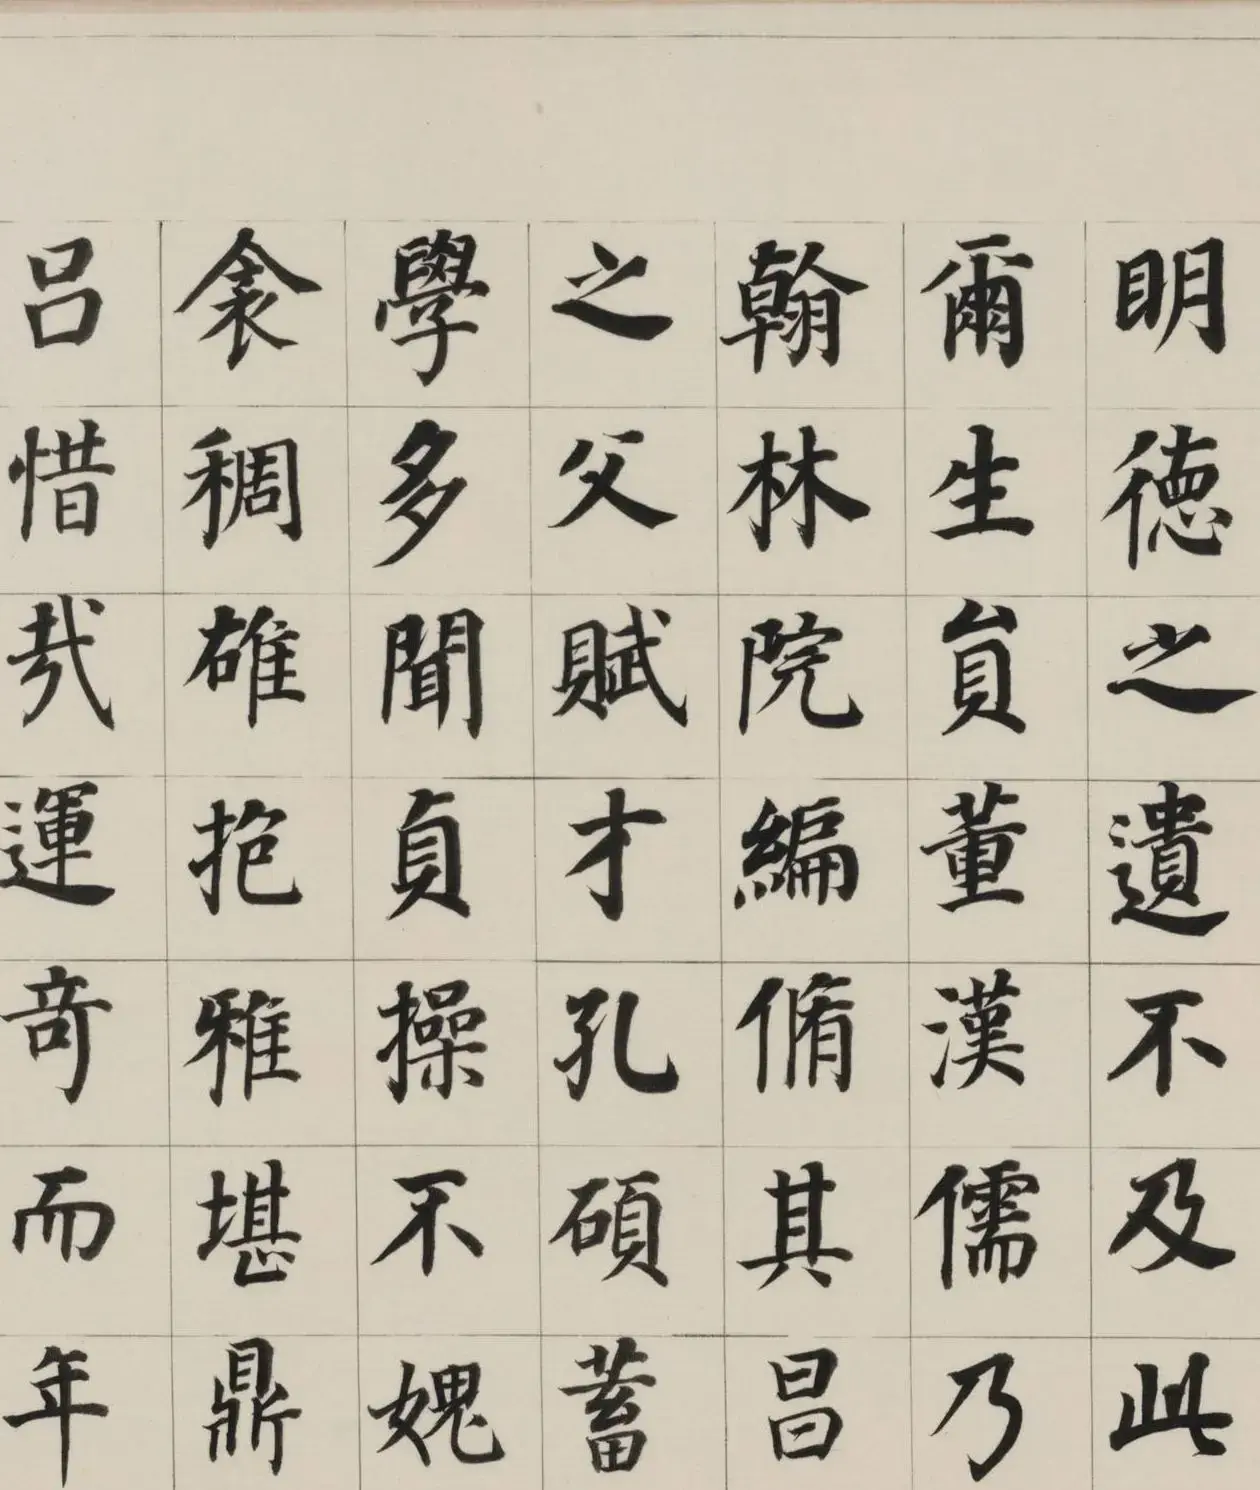 明德之遺不及此
爾生員董漢儒乃
翰林院編脩其昌
之父賦才孔碩蓄
學多聞貞操不媿
衾稠雄抱雅堪鼎
呂惜㢤運奇而年